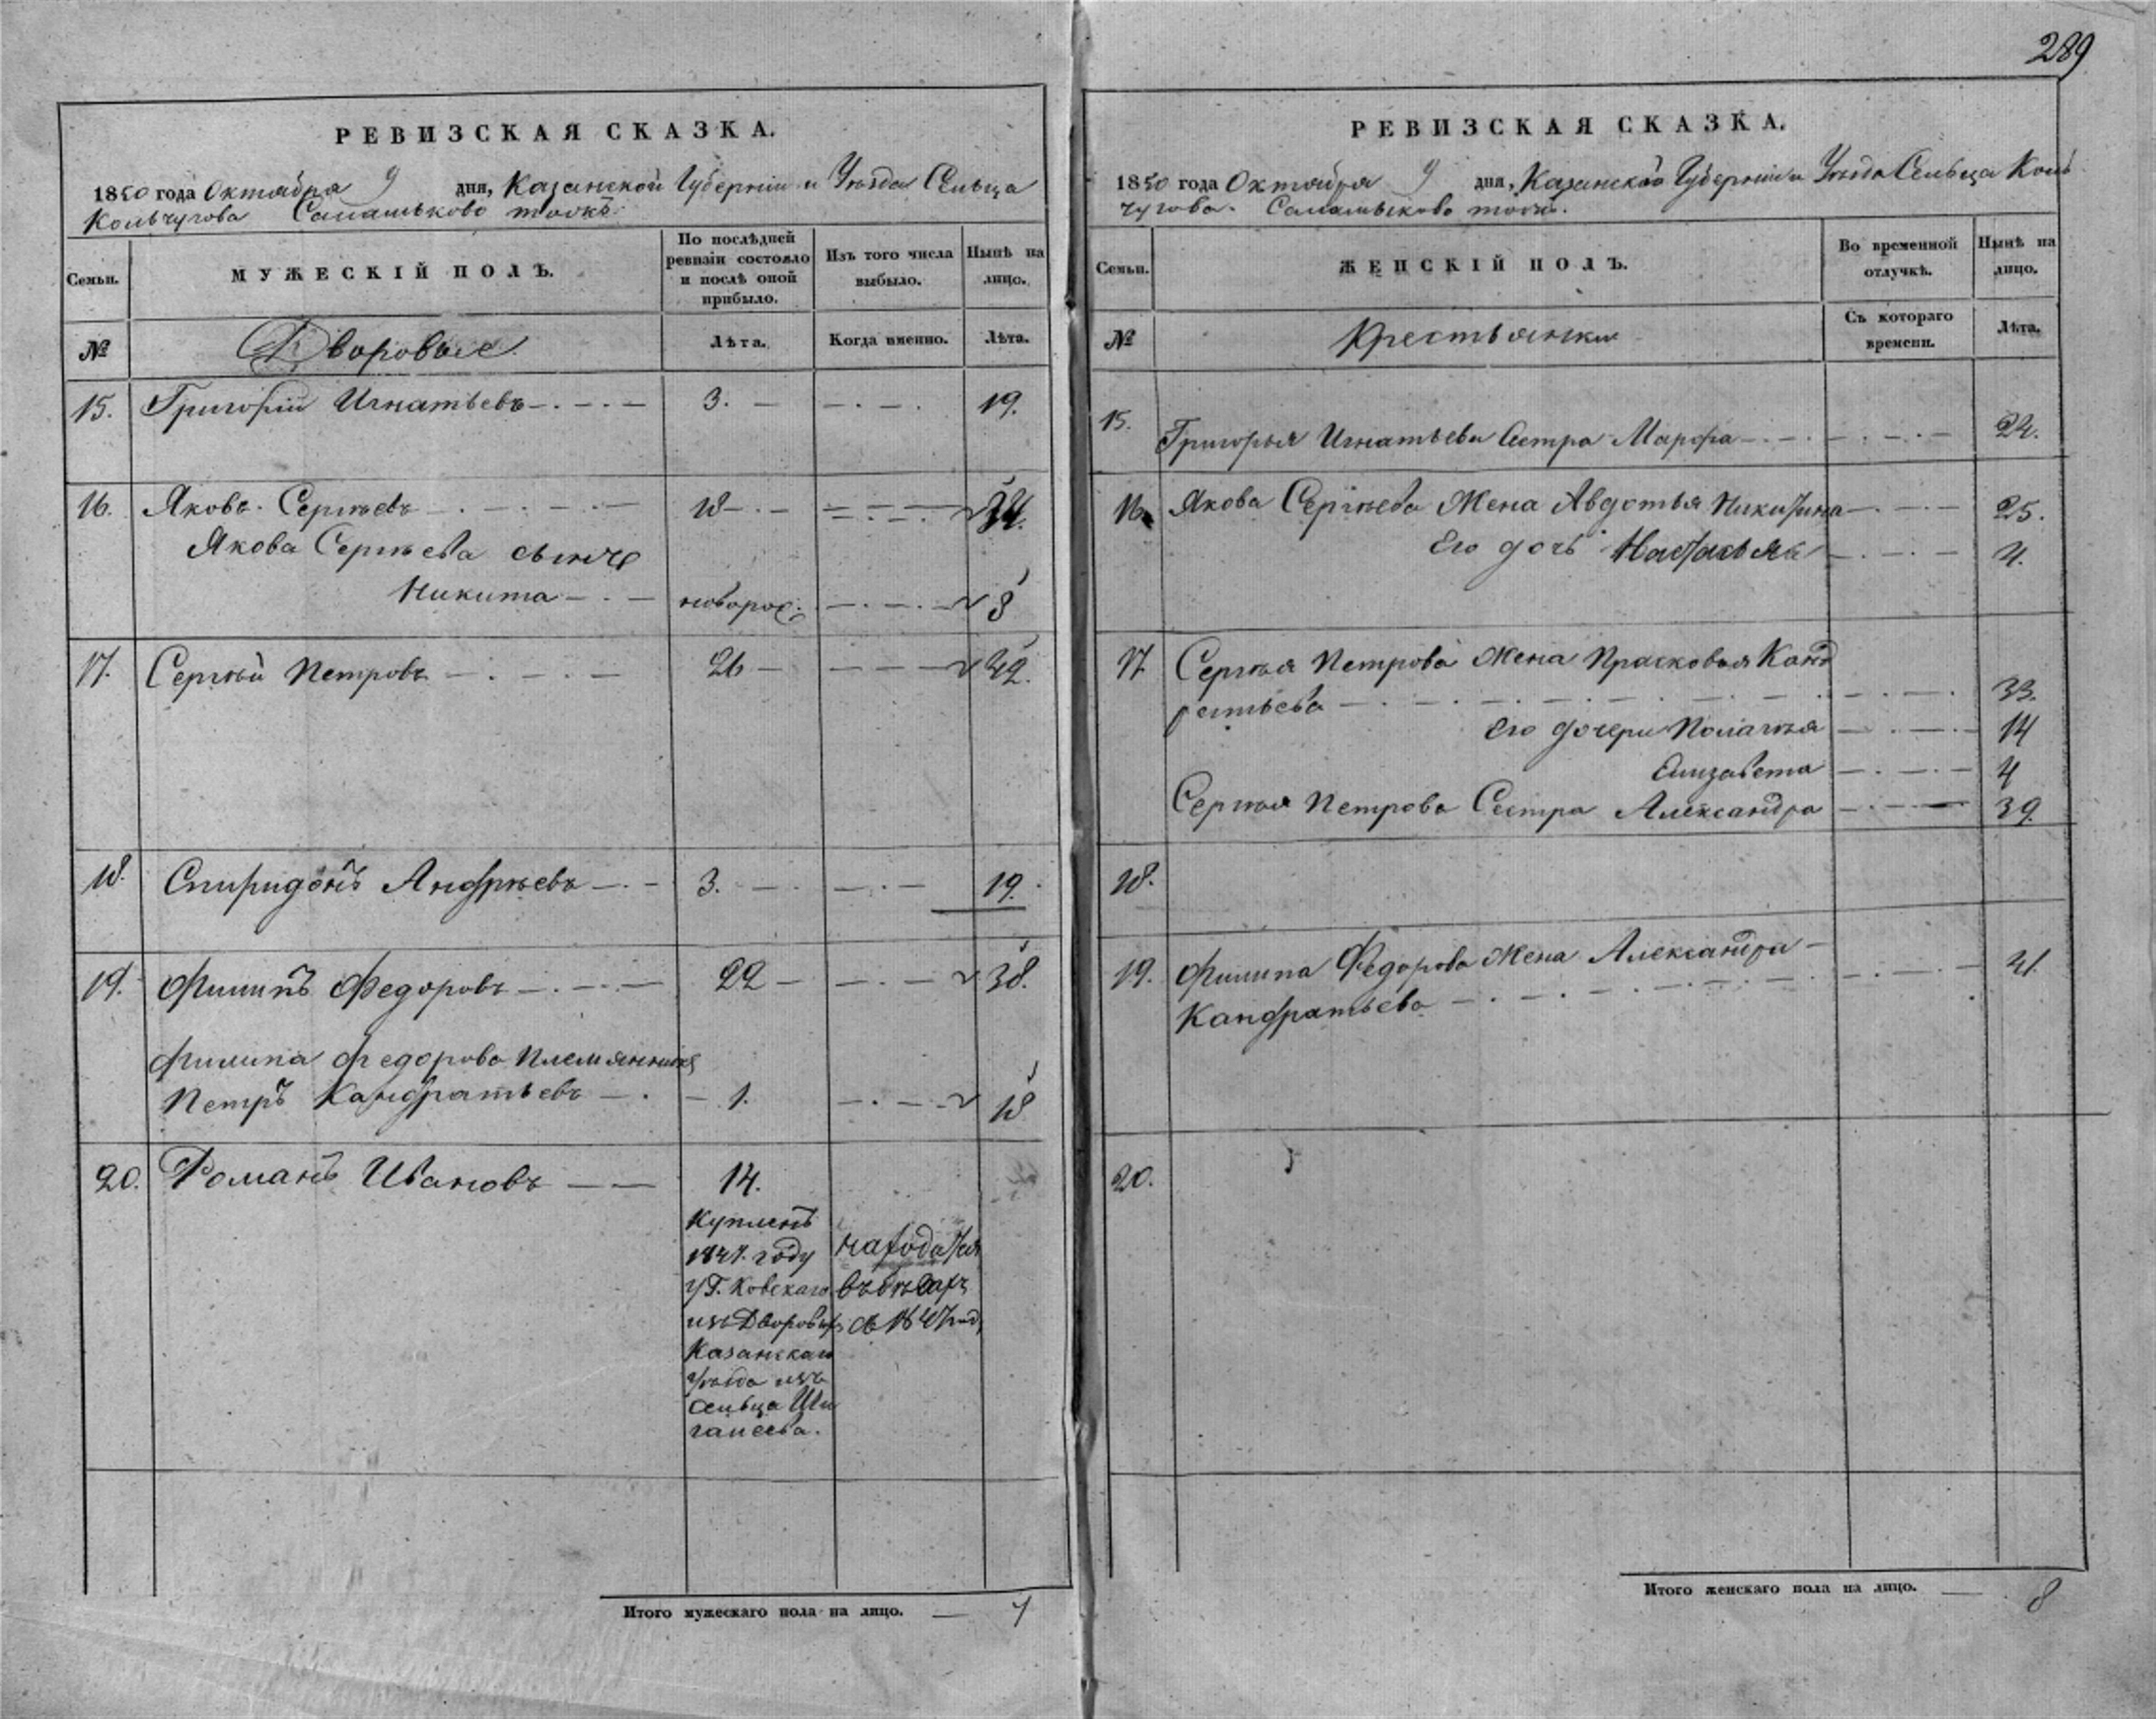 289
РЕВИЗСКАЯ СКАЗКА.
1850 года Октября 9 дня, Казанской Губерніи и Уѣзда Сельца
Кольчугова Салашьково тожъ.
Семьи.
МУЖЕСКІЙ ПОЛЪ.
По послѣдней
ревизіи состояло
и послѣ оной
прибыло.
Изъ того числа
выбыло.
Нынѣ на
лицо.
№
Дворовые
Лѣта.
Когда именно.
Лѣта.
15. Григорій Игнатьевъ 3. 19.
16. Яковъ Сергѣевъ 18 34.
Якова Сергѣева сынъ
Никита новорож. 8
17. Сергѣй Петровъ 26 42.
18. Спиридонъ Андрѣевъ 3. 19.
19. Филипъ Федоровъ 22 38.
Филипа Федорова Племянникъ
Петръ Кандратьевъ 1. 18
20. Романъ Ивановъ 14.
Купленъ
1847. году
у Г. Ковскаго
изъ Дворовых
Казанскаго
уѣзда изъ
сельца Ши
ганеева.
находится
въ бѣгахъ
съ 1847 год,
Итого мужескаго пола на лицо. 7
РЕВИЗСКАЯ СКАЗКА.
1850 года Октября 9 дня, Казанской Губерніи и Уѣзда Сельца Коль
чугова. Салашьково тожъ.
Семьи.
ЖЕНСКІЙ ПОЛЪ.
Во временной
отлучкѣ.
Нынѣ на
лицо.
№
Крестьянки
Съ котораго
времени.
Лѣта.
15. Григорья Игнатьева Сестра Марфа 24.
16. Якова Сергѣева Жена Авдотья Никитина 25.
Его дочь Настасья 4.
17 Сергѣя Петрова Жена Прасковья Канд
ратьева 33.
Его дочери Полагѣя 14
Елизавета 4
Сергѣя Петрова Сестра Александра 39.
18.
19. Филипа Федорова Жена Александра
Кандратьева 41.
20.
Итого женскаго пола на лицо. 8